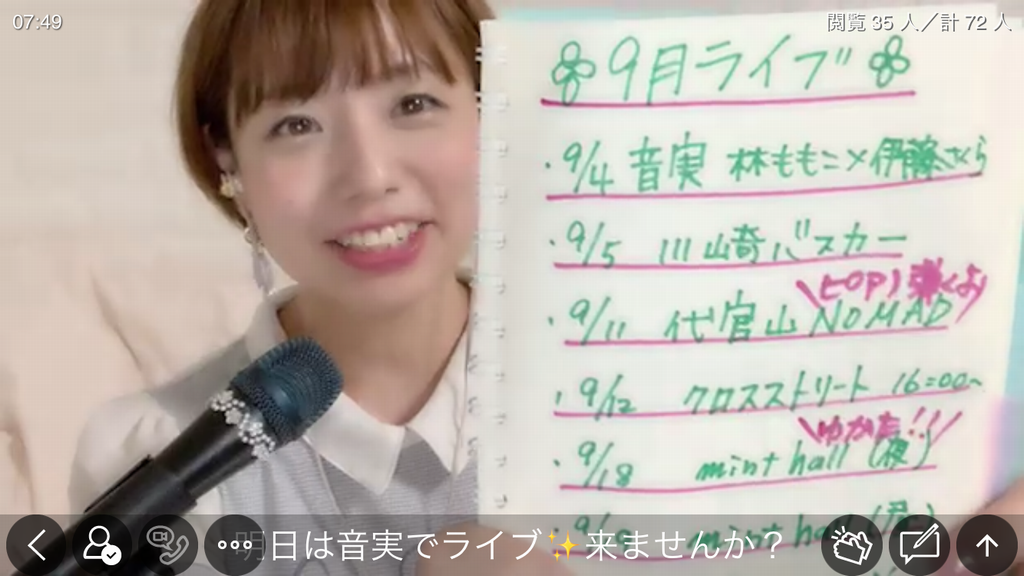 07:49
閲覧 35 人／計 72 人
9月ライブ
・9/4 音実 林ももこ×伊藤さくら
・9/5 川崎バスカー
\ピアノ弾くよ/
・9/11 代官山 NOMAD
・9/12 クロスストリート 16:00~
\ゆかた!!/
・9/18 mint hall (夜)
mint hall
明日は音実でライブ✨来ませんか？